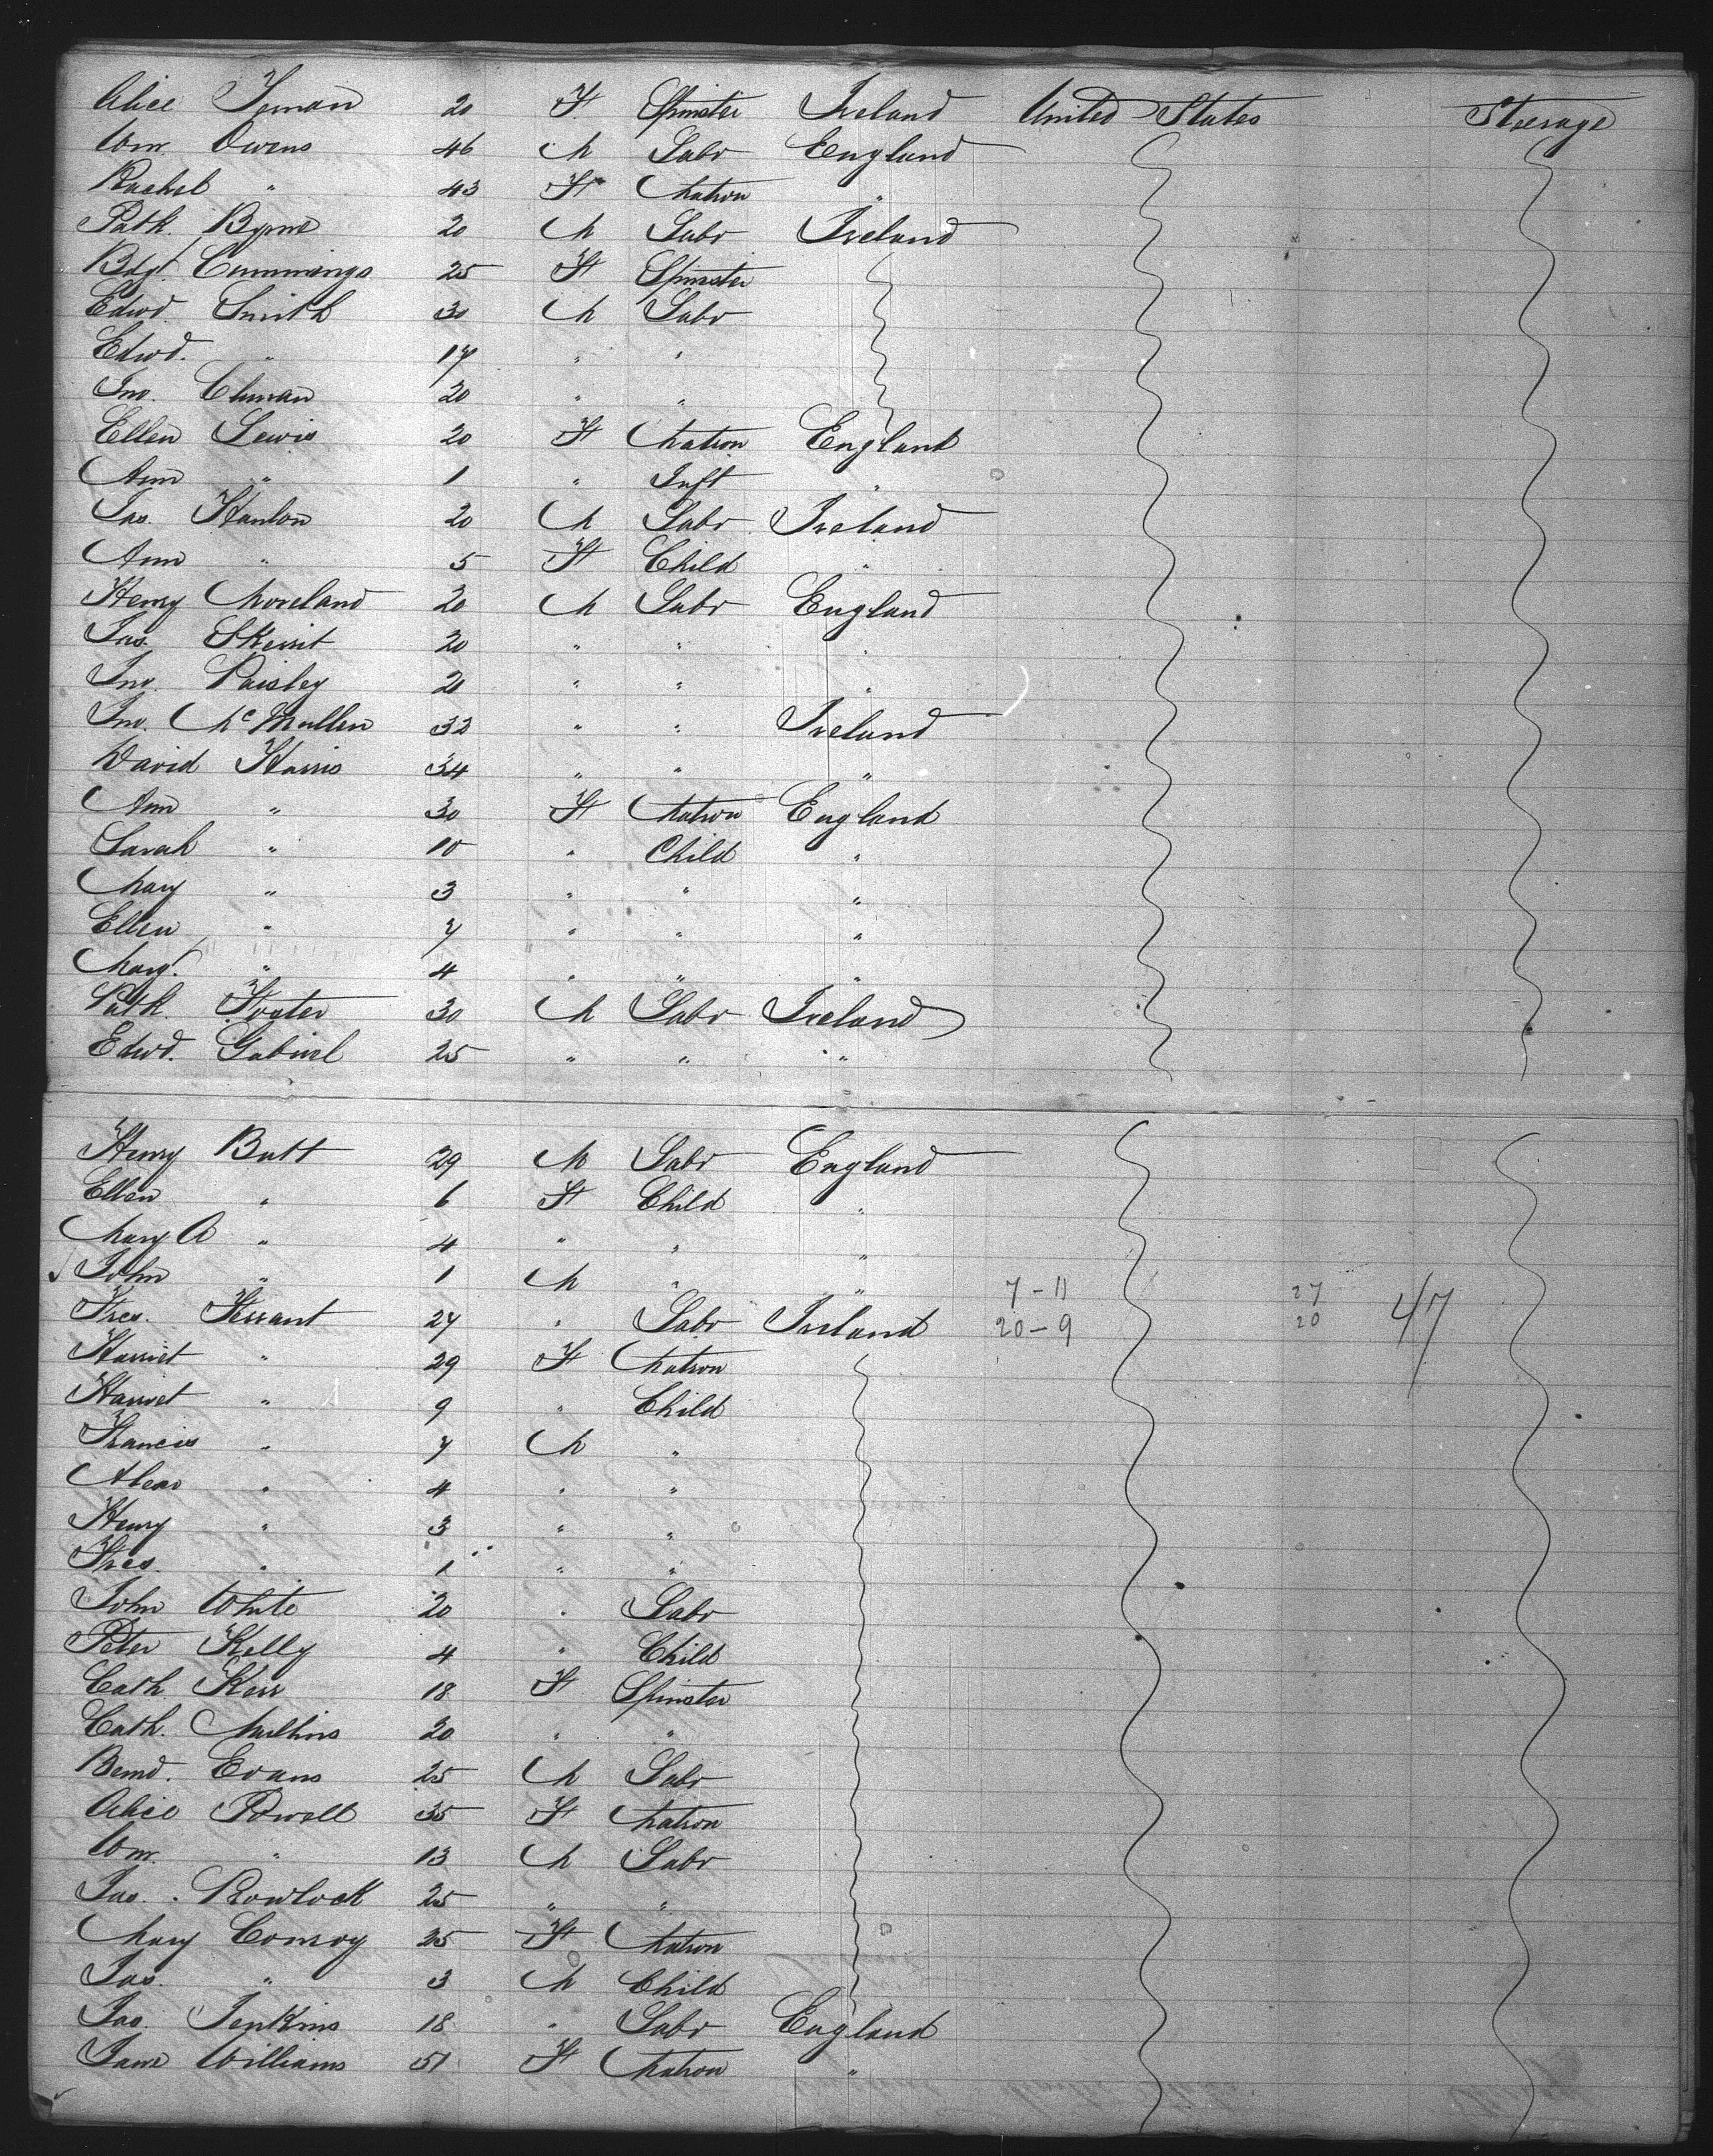 Alice 20 F Spinster Ireland United States Steerage
Wm. Owens 46 M Labr England
Rachel " 43 F Matron "
Patk. Byrne 20 M Labr Ireland
Bdgt Cummings 25 F Spinster
Edwd Smith 30 M Labr
Edwd. " 17 " "
Jno. 20 " "
Ellen Lewis 20 F Matron England
Ann " 1 " Inft "
Jas. Hanlon 20 M Labr Ireland
Ann " 5 F Child "
Henry Moreland 20 M Labr England
Jas. Skerrit 20 " " "
Jno. Paisley 20 " " "
Jno. McMullen 32 " " Ireland
David Harris 34 " " "
Ann " 30 F Matron England
Sarah " 10 " Child "
Mary " 3 " " "
Ellen " 7 " " "
Margt. " 4 " " "
Patk. Foster 30 M Labr Ireland
Edwd. Gabriel 25 " " "
Henry Butt 29 M Labr England
Ellen " 6 F Child "
Mary A " 4 " " "
John " 1 M " " 7-11 27
Fres. Ferrant 27 " Labr Ireland 20-9 20 47
Harriet " 29 F Matron
Harriet " 9 " Child
Francis " 7 M "
" 4 " "
Henry " 3 " "
Fres. " 1 " "
John White 20 " Labr
Peter Kelly 4 " Child
Cath. Kerr 18 F Spinster
Cath. Mullins 20 " "
Bernd. Evans 25 M Labr
Alice Powell 35 F Matron
Wm. " 13 M Labr
Jas. Rowlock 25 " "
Mary Conroy 25 F Matron
Jas. " 3 M Child
Jas. Jenkins 18 " Labr England
Jane Williams 51 F Matron "